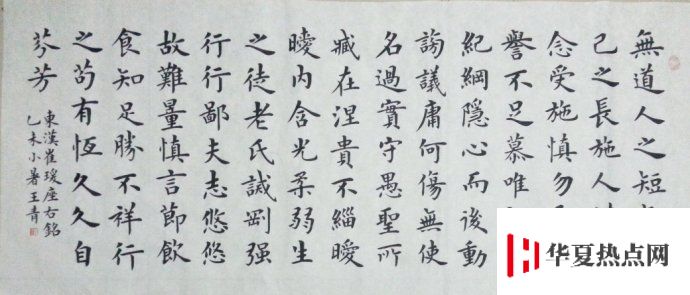 無道人之短
己之長施人
念受施慎勿
譽不足慕唯
紀綱隱心而後動
謗議庸何傷無使
名過實守愚聖所
臧在涅貴不緇曖
曖內含光柔弱生
之徒老氏誡剛强
行行鄙夫志悠悠
故難量慎言節飲
食知足勝不祥行
之苟有恆久久自
芬芳
東漢崔瑗座右銘
乙未小暑王青
华夏热点网